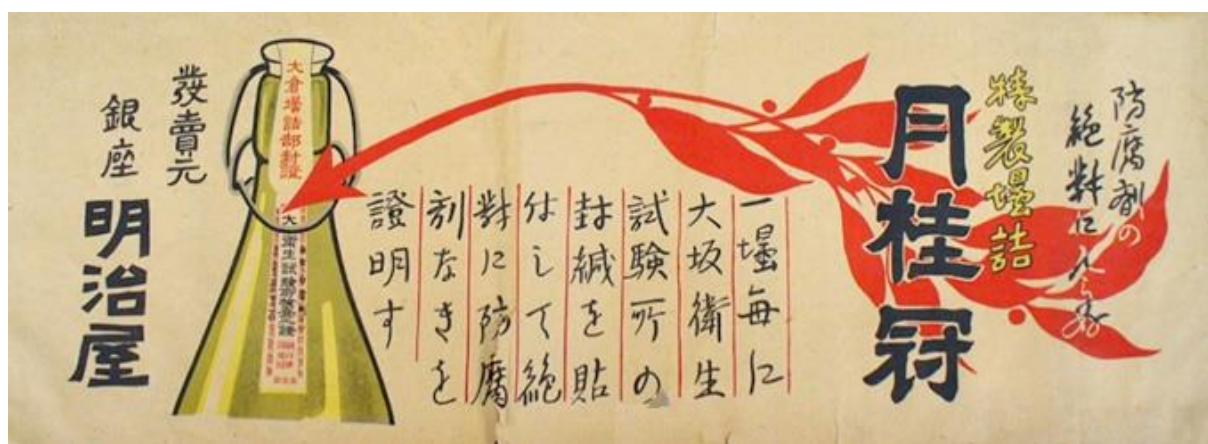 防腐剤の
絶對に入らぬ
特製壜詰
月桂冠
一壜毎に
大坂衛生
試験所の
封緘を貼
付して絶
對に防腐
剤なきを
證明す
大倉壜詰部封證
大
衛生試験所
發賣元
銀座
明治屋